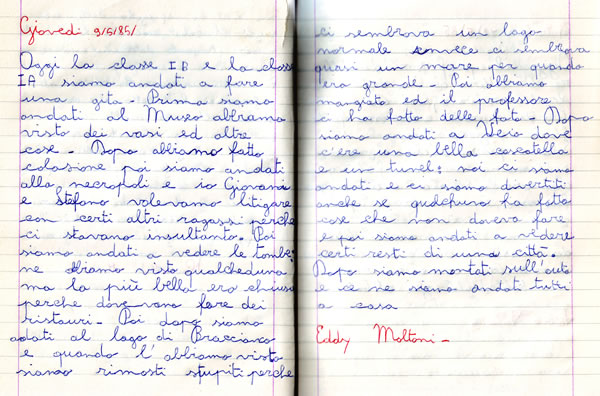 Giovedì 9/5/85/
Oggi la classe IB e la classe
IA siamo andati a fare
una gita - Prima siamo
andati al Museo abbiamo
visto dei vasi ed altre
cose - Dopo abbiamo fatto
colasione poi siamo andati
alla necropoli e io Giovanni
e Stefano volevamo litigare
con certi altri ragassi perche
ci stavano insultanto. Poi
siamo andati a vedere le tombe;
ne abiamo visto qualcheduna
ma la più bella era chiusa
perche dovevano fare dei
ristauri - Poi dopo siamo
andati al lago di Bracciano
e quando l'abbiamo visto
siamo rimasti stupiti perche
ci sembrava un lago
normale invece ci sembrava
quasi un mare per quando
era grande - Poi abbiamo
mangiato ed il professore
ci ha fatto delle foto - Dopo
siamo andati a Veio dove
c'iere una bella cascatella
e un tunel; noi ci siamo
andati e ci siamo divertiti
anche se qualchuno ha fatto
cose che non doveva fare
e poi siamo andati a vedere
certi resti di una città.
Dopo siamo montati sull'auto
e ce ne siamo andati tutti
a casa
Eddy Moltoni -